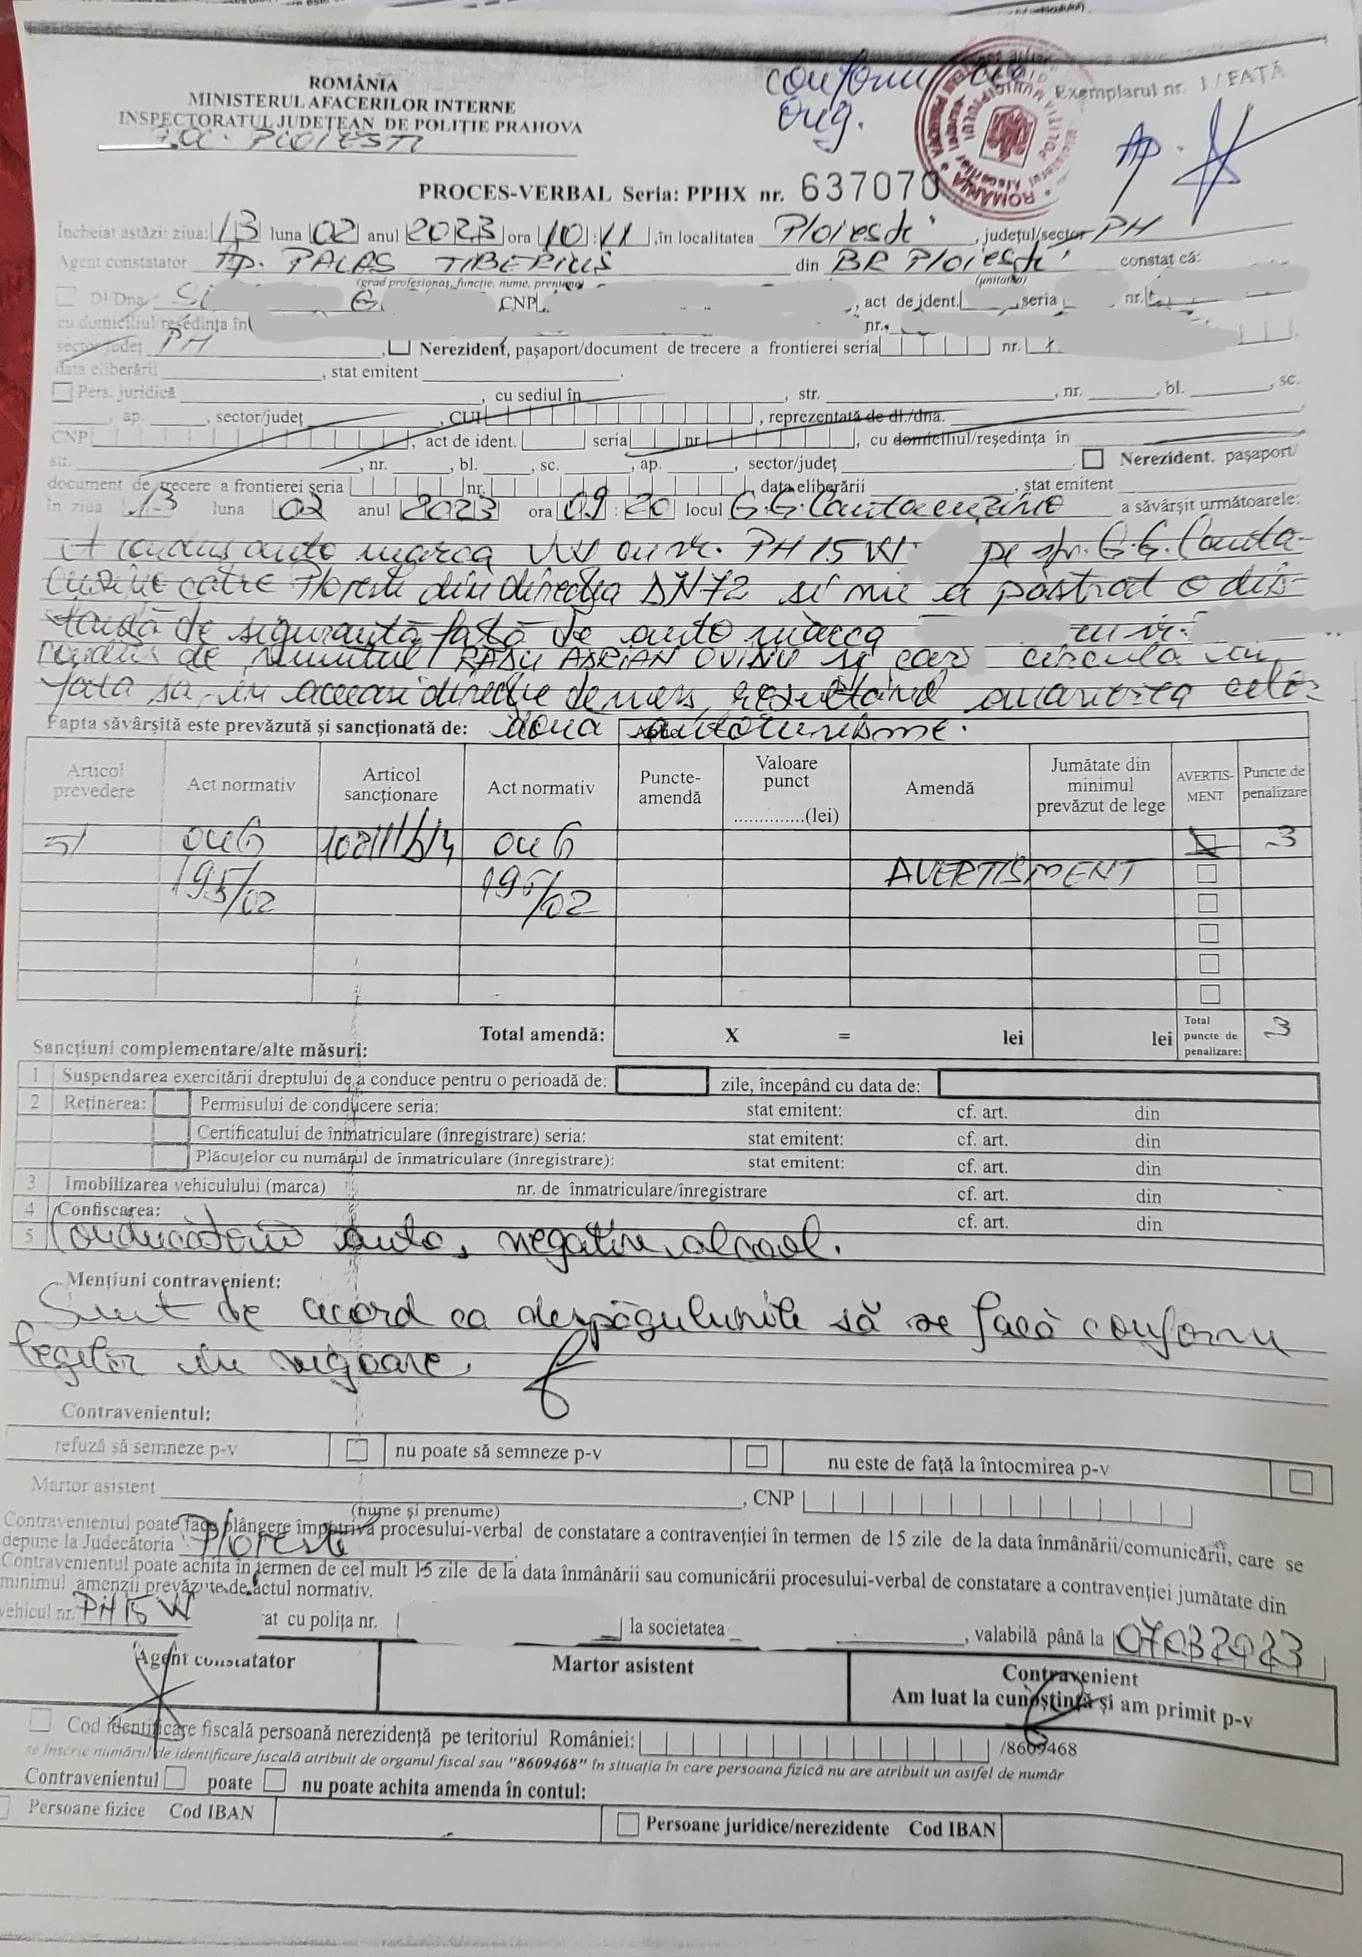 ROMÂNIA
MINISTERUL AFACERILOR INTERNE
INSPECTORATUL JUDEȚEAN DE POLIȚIE PRAHOVA
PLOIESTI
conform cu
orig.
Exemplarul nr. 1 / FAȚĂ
Ap.
PROCES-VERBAL Seria: PPHX nr. 637070
Încheiat astăzi: ziua: 13 luna 02 anul 2023 ora 10:11, în localitatea Ploiesti, județul/sector PH
Agent constatator Ap. PALAS TIBERIUS din BR Ploiesti constat că:
(grad profesional, funcție, nume, prenume) (unitatea)
Dl/Dna CNP , act de ident. seria nr.
cu domiciliul reședința în nr.
sector/județ PH , Nerezident, pașaport/document de trecere a frontierei seria nr.
data eliberării , stat emitent .
Pers. juridică , cu sediul în , str. , nr. , bl. , sc.
, ap. , sector/județ , CUI , reprezentată de dl./dna.
CNP , act de ident. seria nr , cu domiciliul/reședința în
str. , nr. , bl. , sc. , ap. , sector/județ . Nerezident, pașaport/
document de trecere a frontierei seria nr. , data eliberării , stat emitent
în ziua 13 luna 02 anul 2023 ora 09:20 locul G.G. Cantacuzino a săvârșit următoarele:
A condus auto marca VW cu nr. PH 15 pe str. G.G. Canta-
cuzino catre Floresti din direcția DN72 si nu a pastrat o dis-
tanță de siguranță fată de auto marca cu nr.
condus de numitul RADU ADRIAN OVIDIU si care circula in
fata sa, in aceeasi direcție de mers, rezultând avarierea celor
Fapta săvârșită este prevăzută și sancționată de: doua autoturisme.
Articol prevedere Act normativ Articol sancționare Act normativ Puncte-amendă Valoare punct ..............(lei) Amendă Jumătate din minimul prevăzut de lege AVERTIS-MENT Puncte de penalizare
51 OUG OUG 3
195/02 195/02 AVERTISMENT
Total amendă: X = lei lei Total puncte de penalizare: 3
Sancțiuni complementare/alte măsuri:
1 Suspendarea exercitării dreptului de a conduce pentru o perioadă de: zile, începând cu data de:
2 Reținerea: Permisului de conducere seria: stat emitent: cf. art. din
Certificatului de înmatriculare (înregistrare) seria: stat emitent: cf. art. din
Plăcuțelor cu numărul de înmatriculare (înregistrare): stat emitent: cf. art. din
3 Imobilizarea vehiculului (marca) nr. de înmatriculare/înregistrare cf. art. din
4 Confiscarea: cf. art. din
5 Conducătorii auto, negativ alcool.
Mențiuni contravenient:
Sunt de acord ca despăgubirile să se facă conform
legilor in vigoare.
Contravenientul:
refuză să semneze p-v nu poate să semneze p-v nu este de față la întocmirea p-v
Martor asistent , CNP
(nume și prenume)
Contravenientul poate face plângere împotriva procesului-verbal de constatare a contravenției în termen de 15 zile de la data înmânării/comunicării, care se
depune la Judecătoria Ploiesti
Contravenientul poate achita în termen de cel mult 15 zile de la data înmânării sau comunicării procesului-verbal de constatare a contravenției jumătate din
minimul amenzii prevăzute de actul normativ.
vehicul nr. PH 15 W at cu polița nr. la societatea , valabilă până la 07032023
Agent constatator Martor asistent Contravenient
Am luat la cunoștință și am primit p-v
Cod identificare fiscală persoană nerezidență pe teritoriul României: /8609468
se înscrie numărul de identificare fiscală atribuit de organul fiscal sau "8609468" în situația în care persoana fizică nu are atribuit un astfel de număr
Contravenientul poate nu poate achita amenda în contul:
Persoane fizice Cod IBAN Persoane juridice/nerezidente Cod IBAN